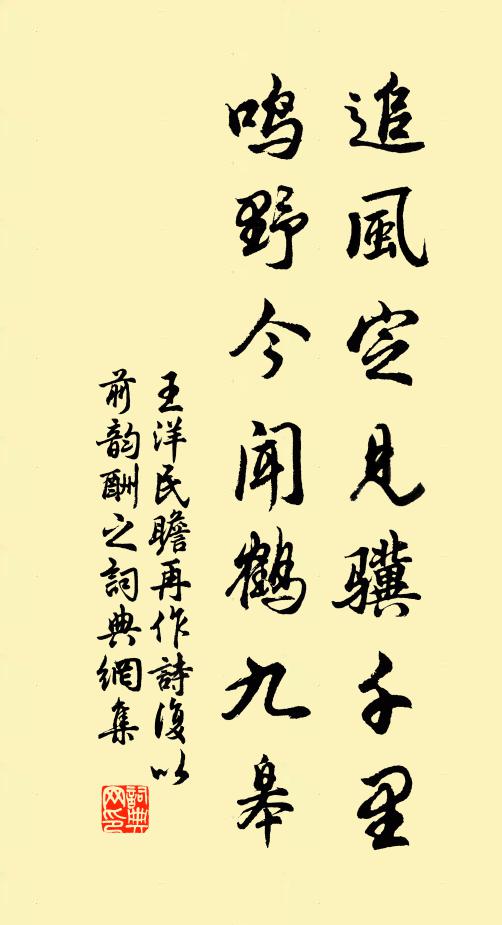 追風定見驥千里
鳴野今聞鶴九皋
王洋民瞻再作詩復以
前韵酬之詞典網集
詞典網印